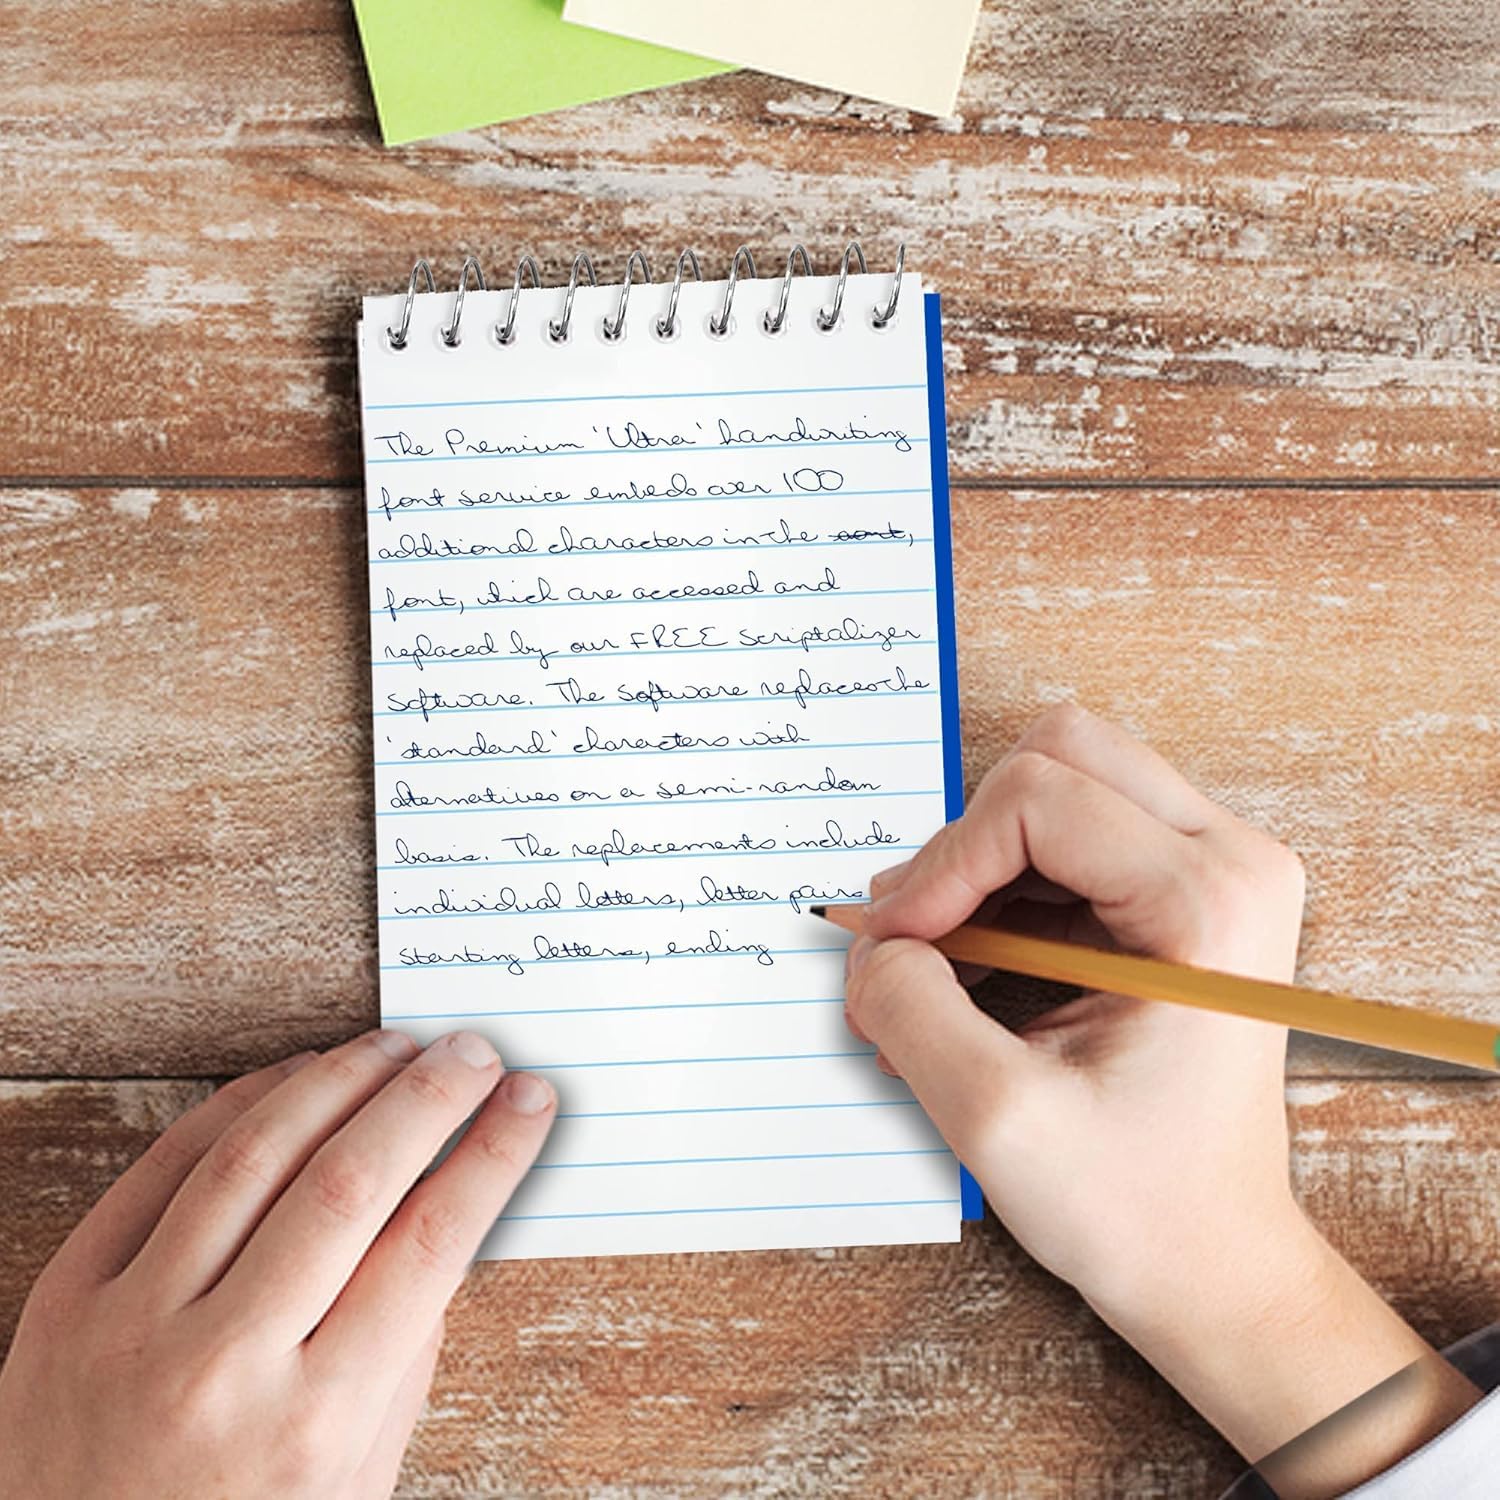 The Premium 'Ultra' handwriting
font service embeds over 100
additional characters in the font,
font, which are accessed and
replaced by our FREE Scriptalizer
Software. The Software replaces the
'standard' characters with
alternatives on a semi-random
basis. The replacements include
individual letters, letter pairs
Starting letters, ending